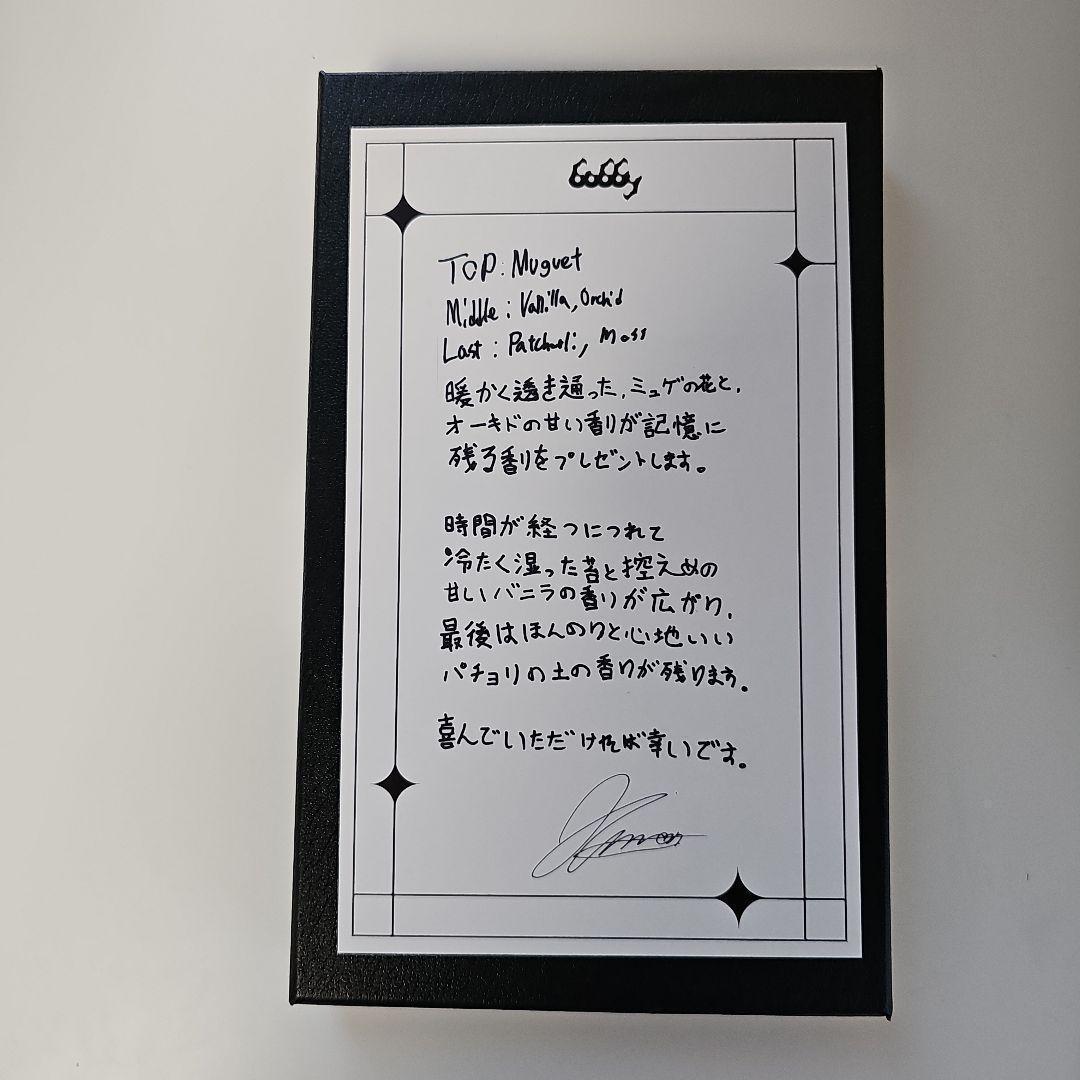 Bobby
TOP: Muguet
Middle: Vanilla, Orchid
Last: Patchouli, Moss
暖かく透き通った、ミュゲの花と、
オーキドの甘い香りが記憶に
残る香りをプレゼントします。
時間が経つにつれて
冷たく湿った苔と控えめの
甘いバニラの香りが広がり、
最後はほんのりと心地いい
パチョリの土の香りが残ります。
喜んでいただければ幸いです。